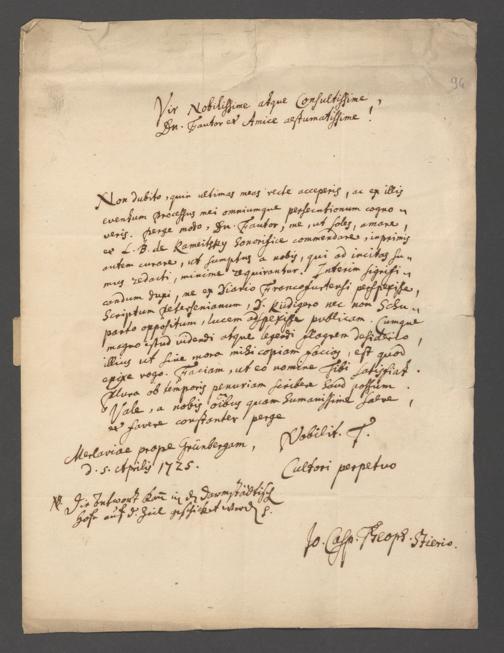 94
Vir Nobilissime atque Consultissime,
Dn. Fautor et Amice aestumatissime!
Non dubito, quin ultimas meas recte acceperis, ac ex illis
eventum processus mei omniumque persecutionum cogno-
veris. Perge modo, Dn. Fautor, me, ut soles, amare,
et L. B. de Kameitsky honorifice commendare, inprimis
autem curare, ut sumptus a nobis, qui ad incitas su-
mus redacti, minime requirantur. Interim signifi-
candum duxi, me ex Diario Francofurtensi perspexisse,
Scriptum Petersenianum, D. Rüdigero nec non Schu-
parto oppositum, lucem adspexisse publicam. Cumque
magno istud videndi atque legendi flagrem desiderio,
illius ut sine mora mihi copiam facias, est quod
rogo. Faciam, ut eo nomine Tibi satisfiat.
Plura ob temporis penuriam scribere haud possum.
Vale, a nobis omnibus quam humanissime salve,
et favere constanter perge
Merlaviae prope Grünbergam,
d. 5. Aprilis 1725.
Nobilit. T.
Cultori perpetuo
Die Antwort kan in den Darmstädtisch
hofe auf d. Zeil geschicket werden.
Jo. Casp. Theoph. Stierio.